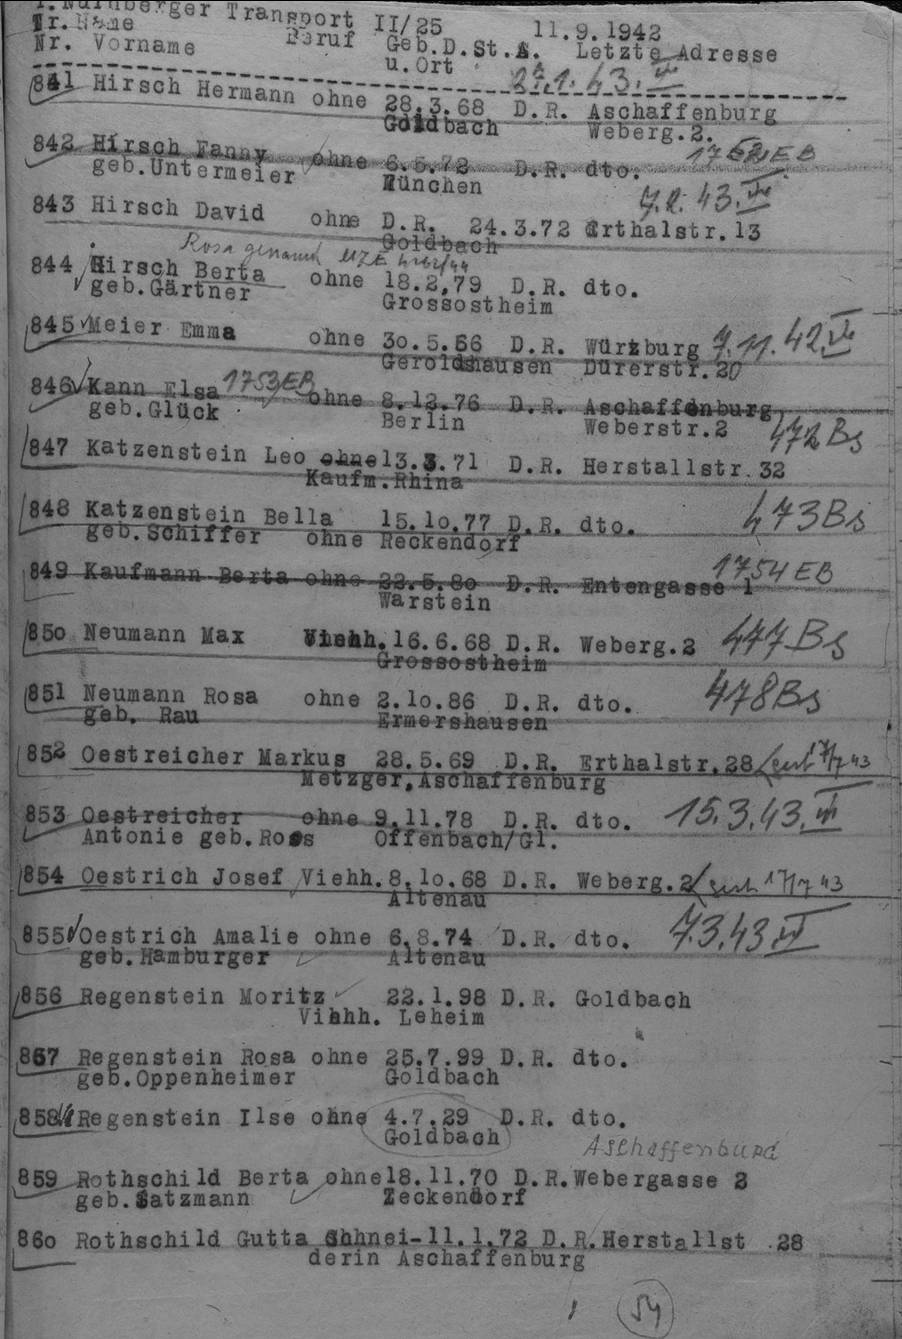 Nürnberger Transport II/25 11.9.1942
Tr. Name Beruf Geb.D.St.A. Letzte Adresse
Nr. Vorname u.Ort
841 Hirsch Hermann ohne 28.3.68 D.R. Aschaffenburg
Goldbach Weberg.2.
842 Hirsch Fanny ohne 6.5.72 D.R. dto.
geb.Untermeier München
7.2.43.
843 Hirsch David ohne D.R. 24.3.72 Erthalstr.13
Goldbach
Rosa genannt
844 Hirsch Berta ohne 18.2.79 D.R. dto.
geb.Gärtner Grossostheim
845 Meier Emma ohne 30.5.66 D.R. Würzburg 7.11.42
Geroldshausen Dürerstr.20
846 Kann Elsa 1753EB ohne 8.12.76 D.R. Aschaffenburg
geb.Glück Berlin Weberstr.2
472Bs
847 Katzenstein Leo ohne 13.3.71 D.R. Herstallstr.32
Kaufm.Rhina
848 Katzenstein Bella 15.10.77 D.R. dto. 473Bs
geb.Schiffer ohne Reckendorf
1754EB
849 Kaufmann Berta ohne 22.5.80 D.R. Entengasse 1
Warstein
850 Neumann Max Viehh.16.6.68 D.R. Weberg.2 477Bs
Grossostheim
851 Neumann Rosa ohne 2.10.86 D.R. dto. 478Bs
geb. Rau Ermershausen
852 Oestreicher Markus 28.5.69 D.R. Erthalstr.28 gest 17/7 43
Metzger,Aschaffenburg
853 Oestreicher ohne 9.11.78 D.R. dto. 15.3.43.
Antonie geb.Roes Offenbach/Gl.
854 Oestrich Josef Viehh.8.10.68 D.R. Weberg.2 gest 17/7 43
Altenau
855 Oestrich Amalie ohne 6.8.74 D.R. dto. 7.3.43
geb.Hamburger Altenau
856 Regenstein Moritz 22.1.98 D.R. Goldbach
Viehh. Leheim
857 Regenstein Rosa ohne 25.7.99 D.R. dto.
geb.Oppenheimer Goldbach
858 Regenstein Ilse ohne 4.7.29 D.R. dto.
Goldbach
Aschaffenburg
859 Rothschild Berta ohne18.11.70 D.R.Webergasse 2
geb.Satzmann Zeckendorf
860 Rothschild Gutta Schnei-11.1.72 D.R.Herstallst .28
derin Aschaffenburg
54